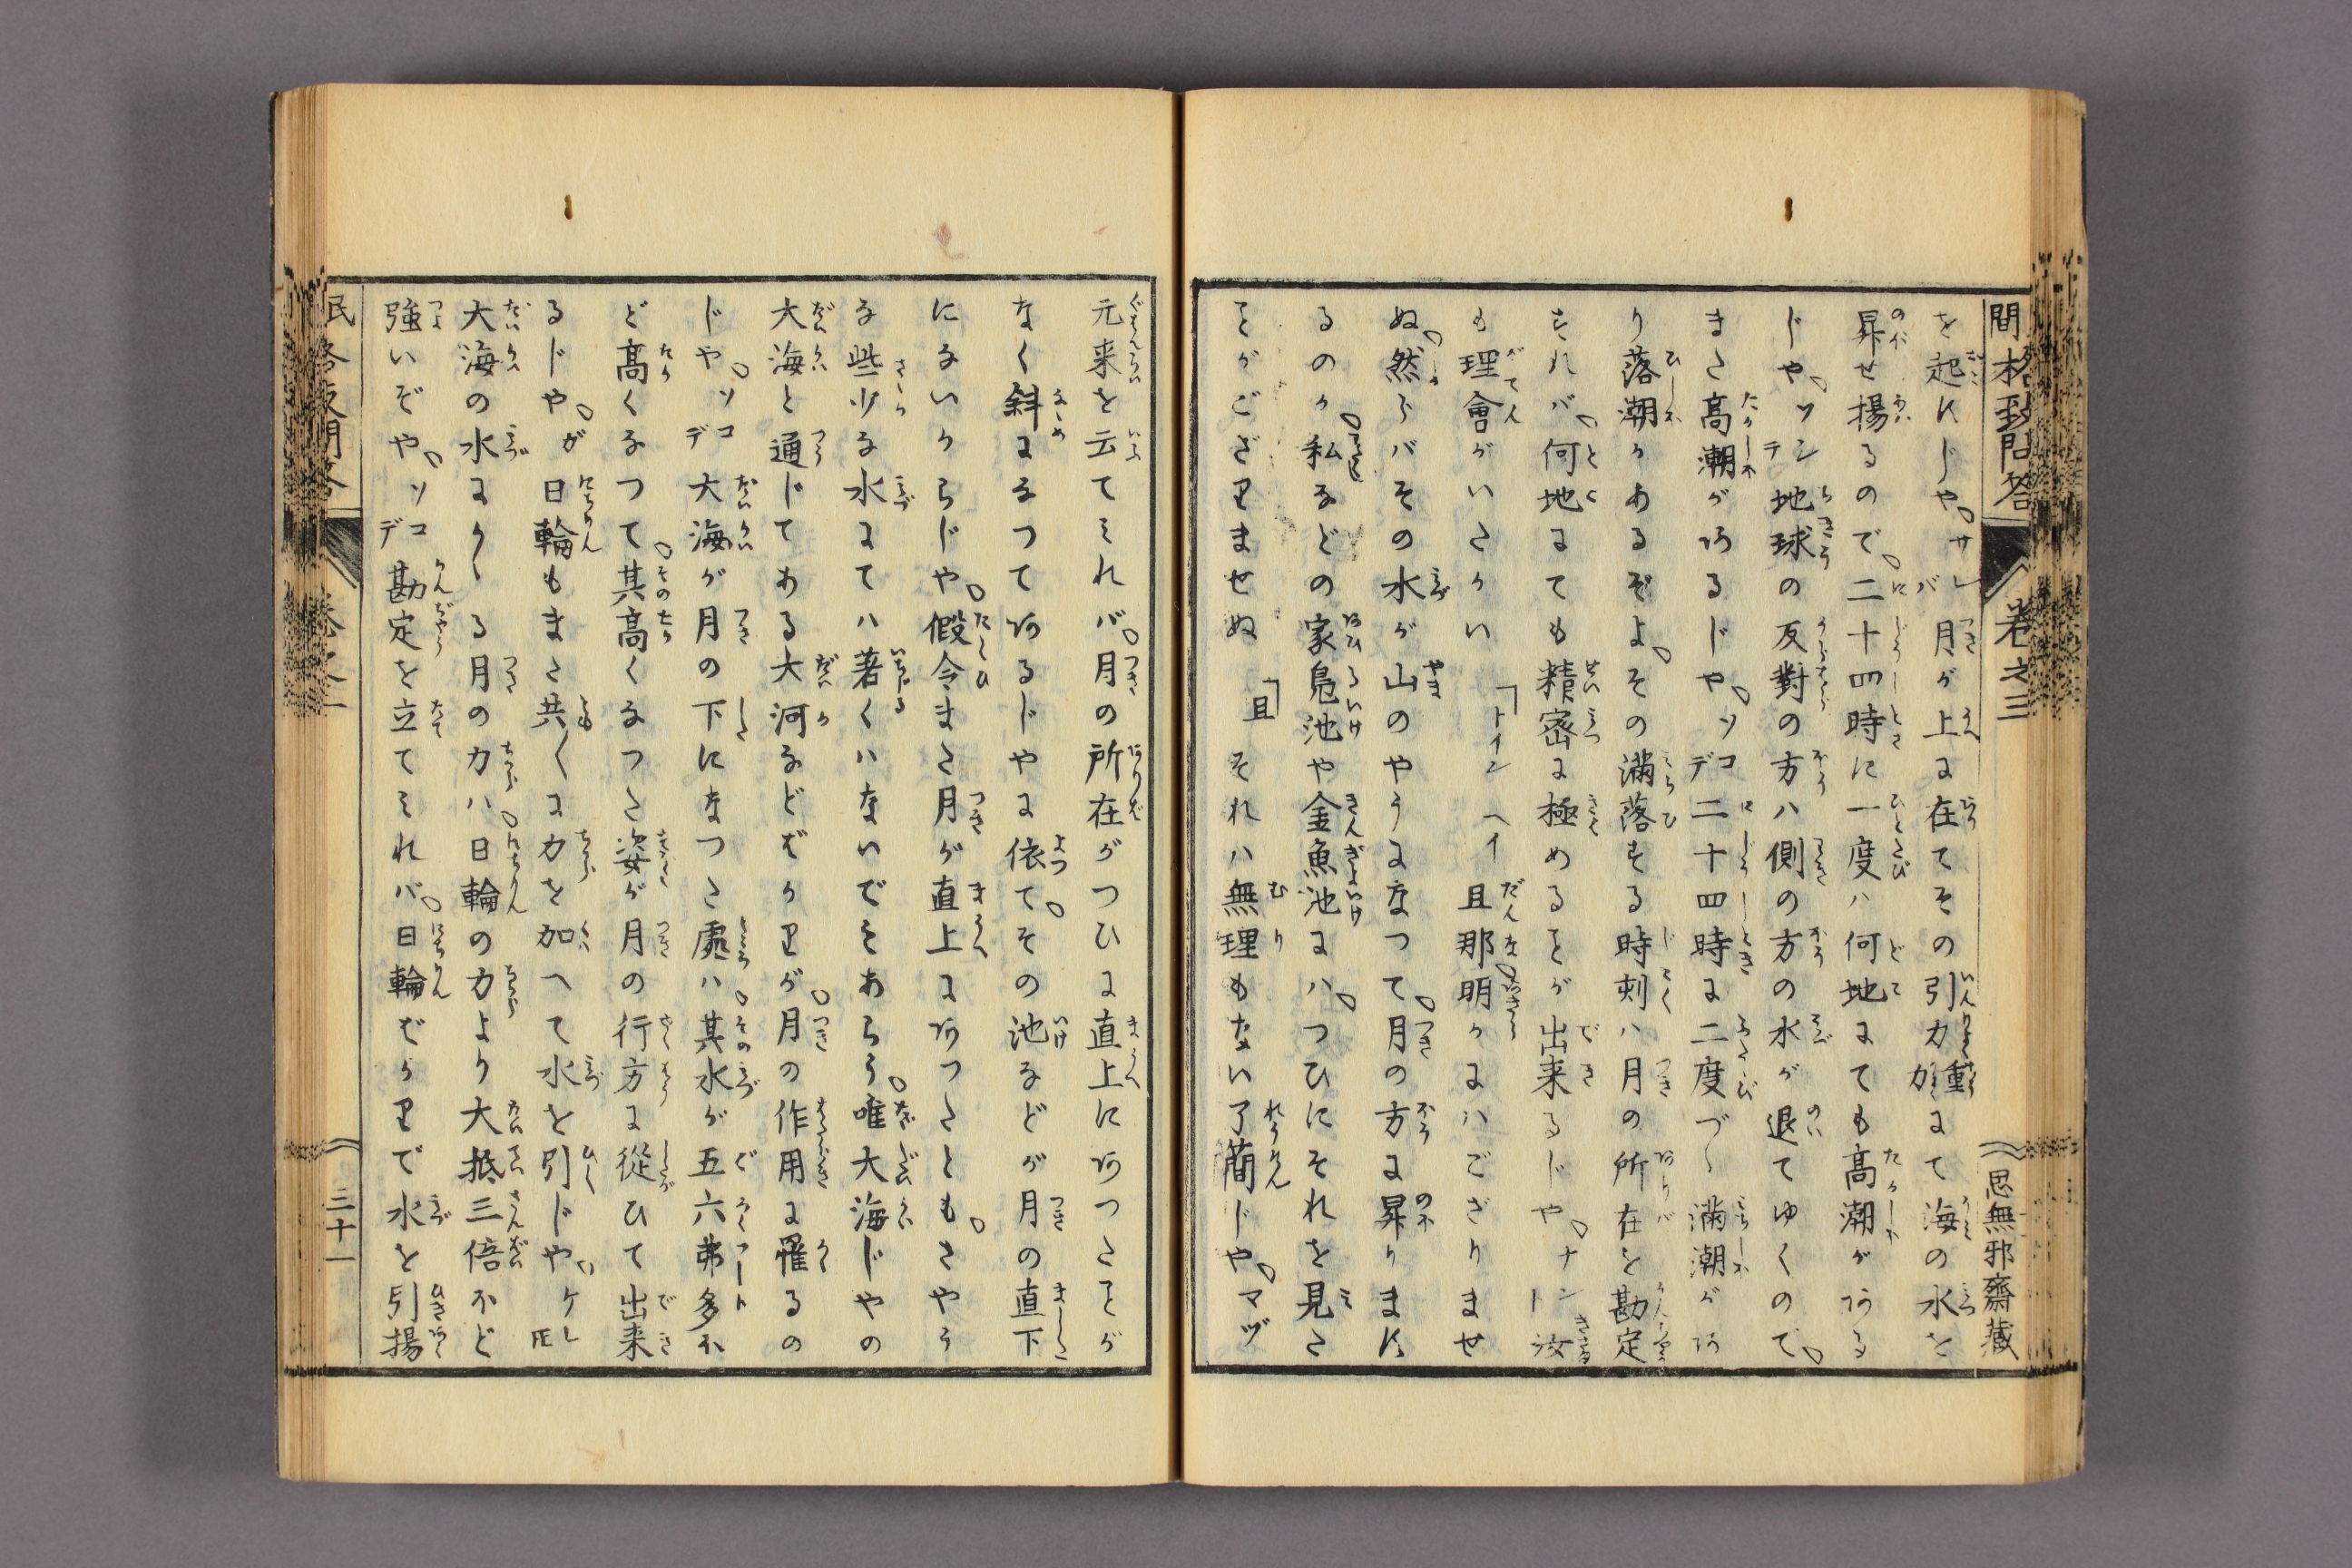 間格致問答 巻之三 思無邪齋藏
を起すじや。サレバ月が上に在てその引力重力にて海の水を
昇せ揚るので。二十四時に一度ハ何地にても高潮がある
じや。ソシテ地球の反對の方ハ側の方の水が退てゆくので。
また高潮があるじや。ソコデ二十四時に二度づゝ満潮があ
り落潮があるぞよ。その満落する時刻ハ月の所在を勘定
すれバ。何地にても精密に極めることが出来るじや。ナント汝
も理會がいたかい 「トイシ ヘイ 且那明かにハござりませ
ぬ。然らバその水が山のやうになつて。月の方に昇ります
るのか。私などの家鳧池や金魚池にハ。つひにそれを見た
ことがござりませぬ 「且 それハ無理もない了簡じや。マヅ
元来を云てみれバ。月の所在がつひに直上にあつたことが
なく斜になつてあるじやに依て。その池などが月の直下
にないからじや。假令また月が直上にあつたとも。さやう
な些少な水にてハ著くハないでもあらう。唯大海じやの
大海と通じてある大河などばかりが。月の作用に罹るの
じや。ソコデ大海が月の下になつた處ハ。其水が五六弗多ほ
ど高くなつて。其高くなつた姿が月の行方に從ひて出来
るじや。が日輪もまた共〱に力を加へて水を引じや。ケレ𪜈
大海の水にかゝる月の力ハ。日輪の力より大抵三倍ほど
強いぞや。ソコデ勘定を立てみれバ。日輪ばかりで水を引揚
三十一